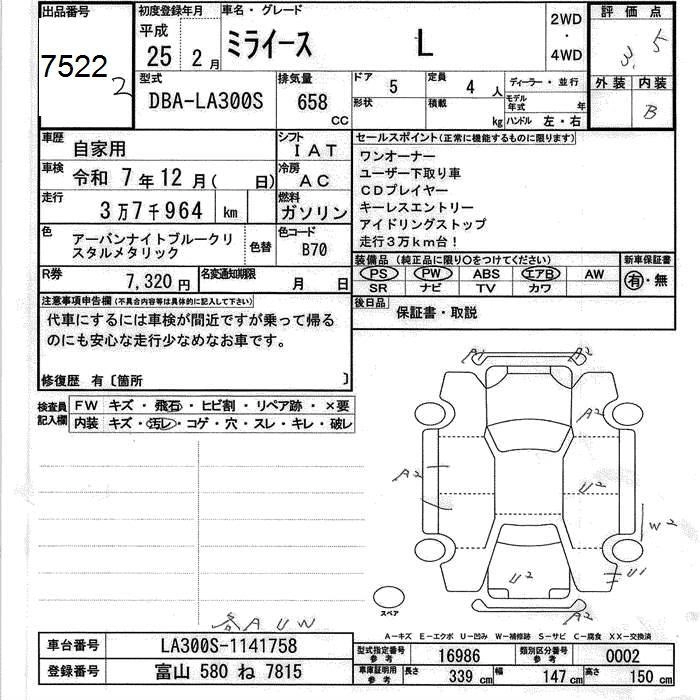 出品番号
7522
2
初度登録年月
平成
25 2 月
車名・グレード
ミライース L
2WD
・
4WD
評価点
3.5
外装 内装
B
型式
DBA-LA300S
排気量
658
CC
ドア
5
定員
4 人
ディーラー・並行
形状
積載
kg
モデル年式 年
ハンドル 左・右
車歴
自家用
シフト
IAT
車検
令和 7年12月( 日)
冷房
AC
走行
3万7千964 km
燃料
ガソリン
色
アーバンナイトブルークリ
スタルメタリック
色替
色コード
B70
R券
7,320円
名変通知期限
月 日
セールスポイント(正常に機能するものに限ります)
ワンオーナー
ユーザー下取り車
CDプレイヤー
キーレスエントリー
アイドリングストップ
走行3万km台!
装備品(純正品に限り〇をつけてください)
新車保証書
PS PW ABS エアB AW
SR ナビ TV カワ
有・無
後日品
保証書・取説
注意事項申告欄(不具合内容等は具体的に記入して下さい)
代車にするには車検が間近ですが乗って帰る
のにも安心な走行少なめなお車です。
修復歴 有〔箇所 〕
検査員
記入欄
FW キズ・飛石・ヒビ割・リペア跡・×要
内装 キズ・汚レ・コゲ・穴・スレ・キレ・破レ
A2
A2
A2
U2
W2
U2
U1
A2
スペア
各AUW
A-キズ E-エクボ U-凹み W-補修跡 S-サビ C-腐食 XX-交換済
車台番号
LA300S-1141758
登録番号
富山 580 ね 7815
型式指定番号
参考
16986
類別区分番号
参考
0002
車庫証明用
参考
長さ
339 cm
幅
147 cm
高さ
150 cm